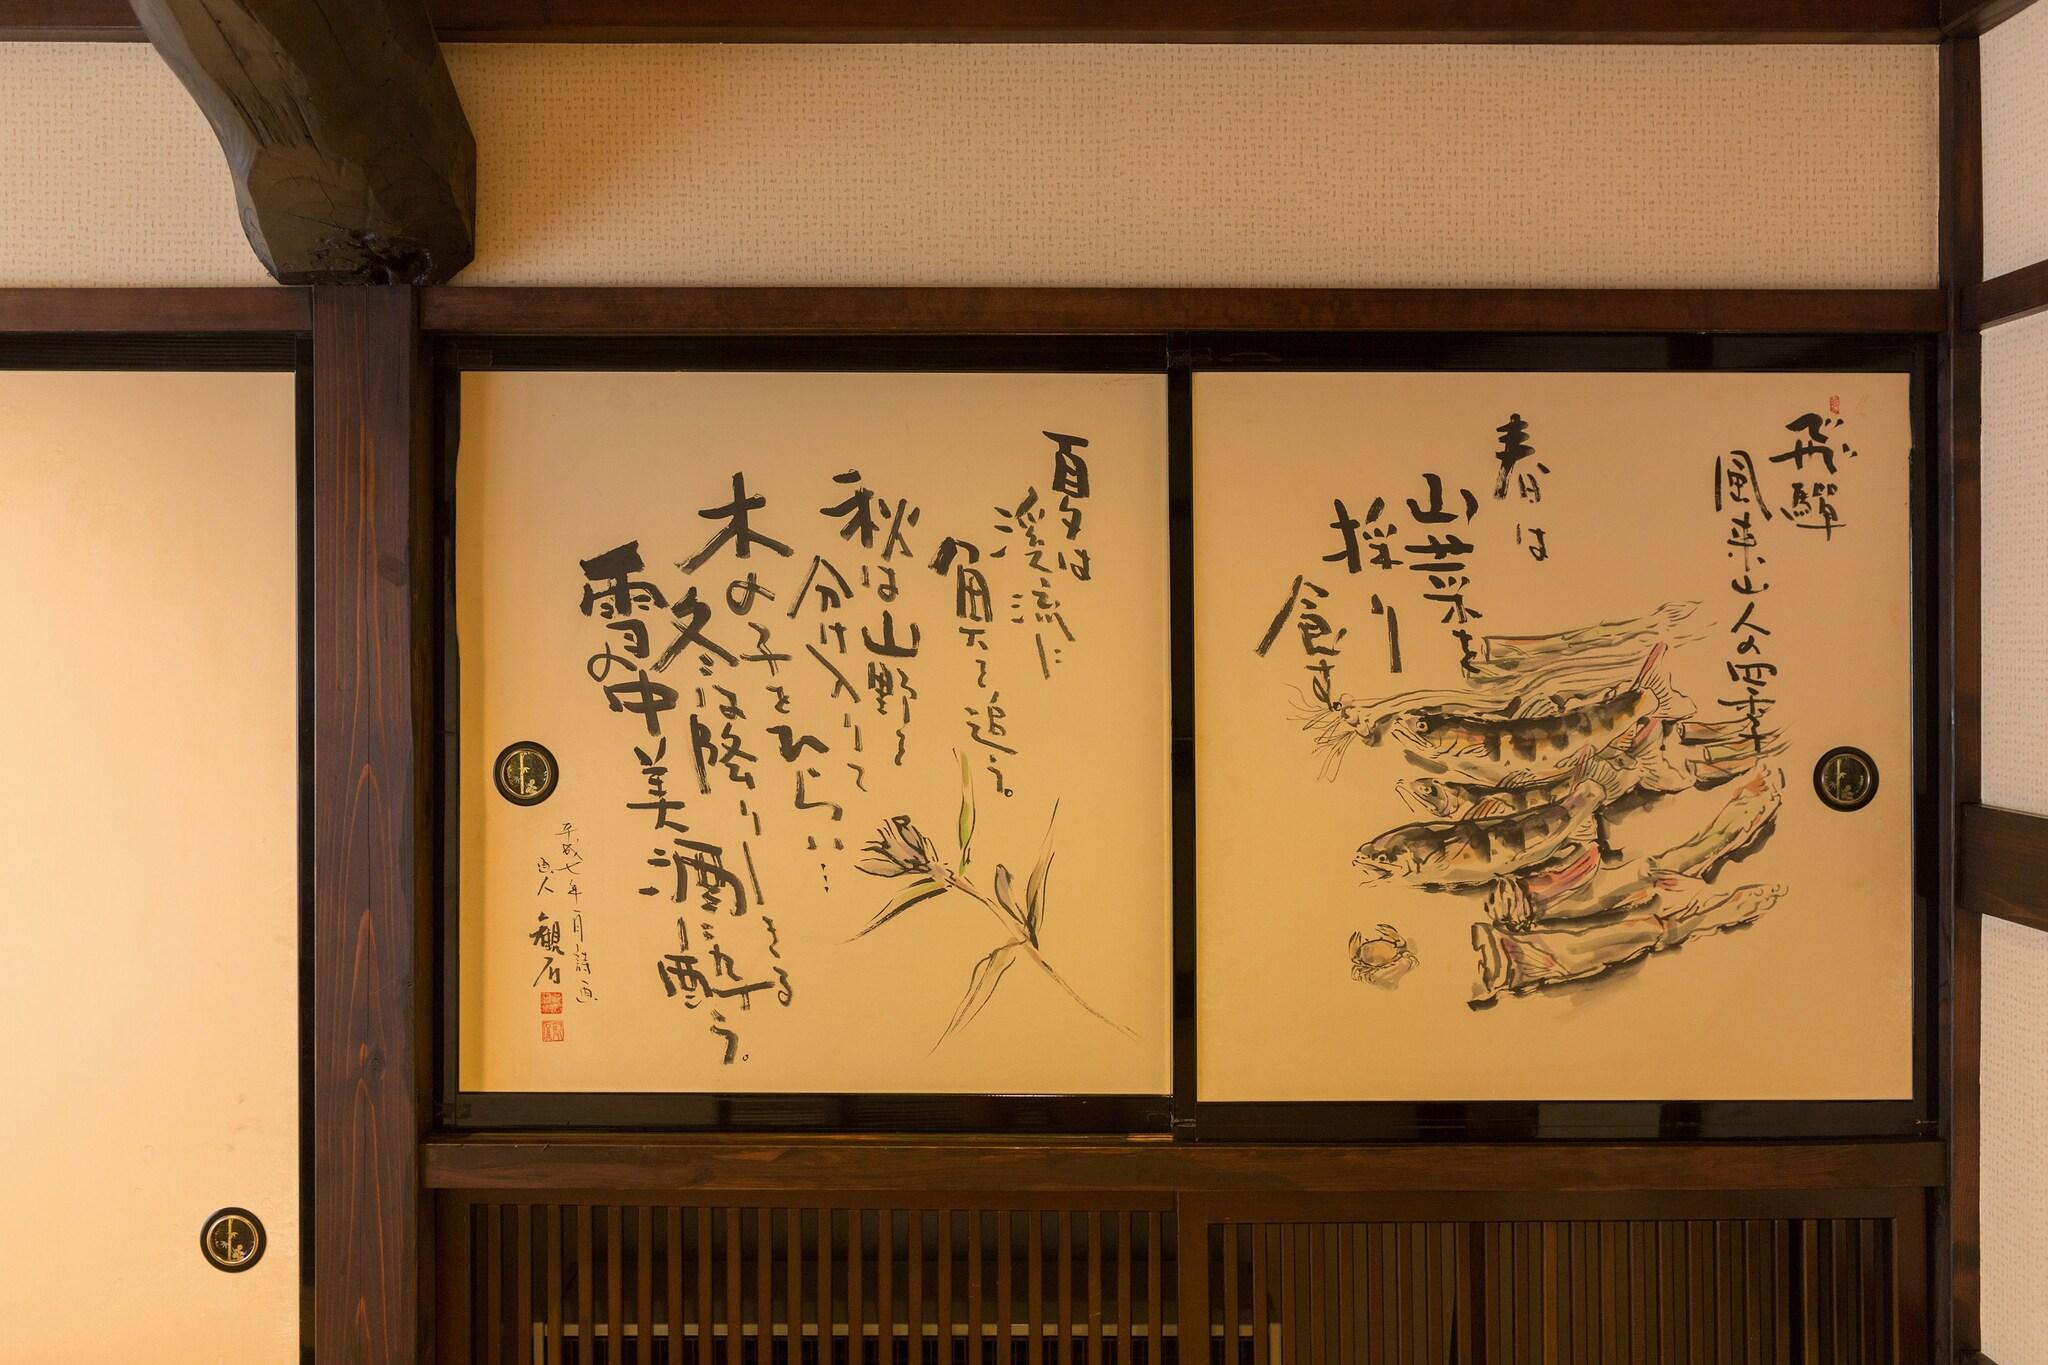 飛驒
風来山人の四季
春は
山菜を
採り
食す
夏は
渓流に
角天を追う。
秋は山野を
分け入りて
木の子をひらい…
冬は降りしきる
雪の中美酒に酔う。
平成七年一月詩画
画人